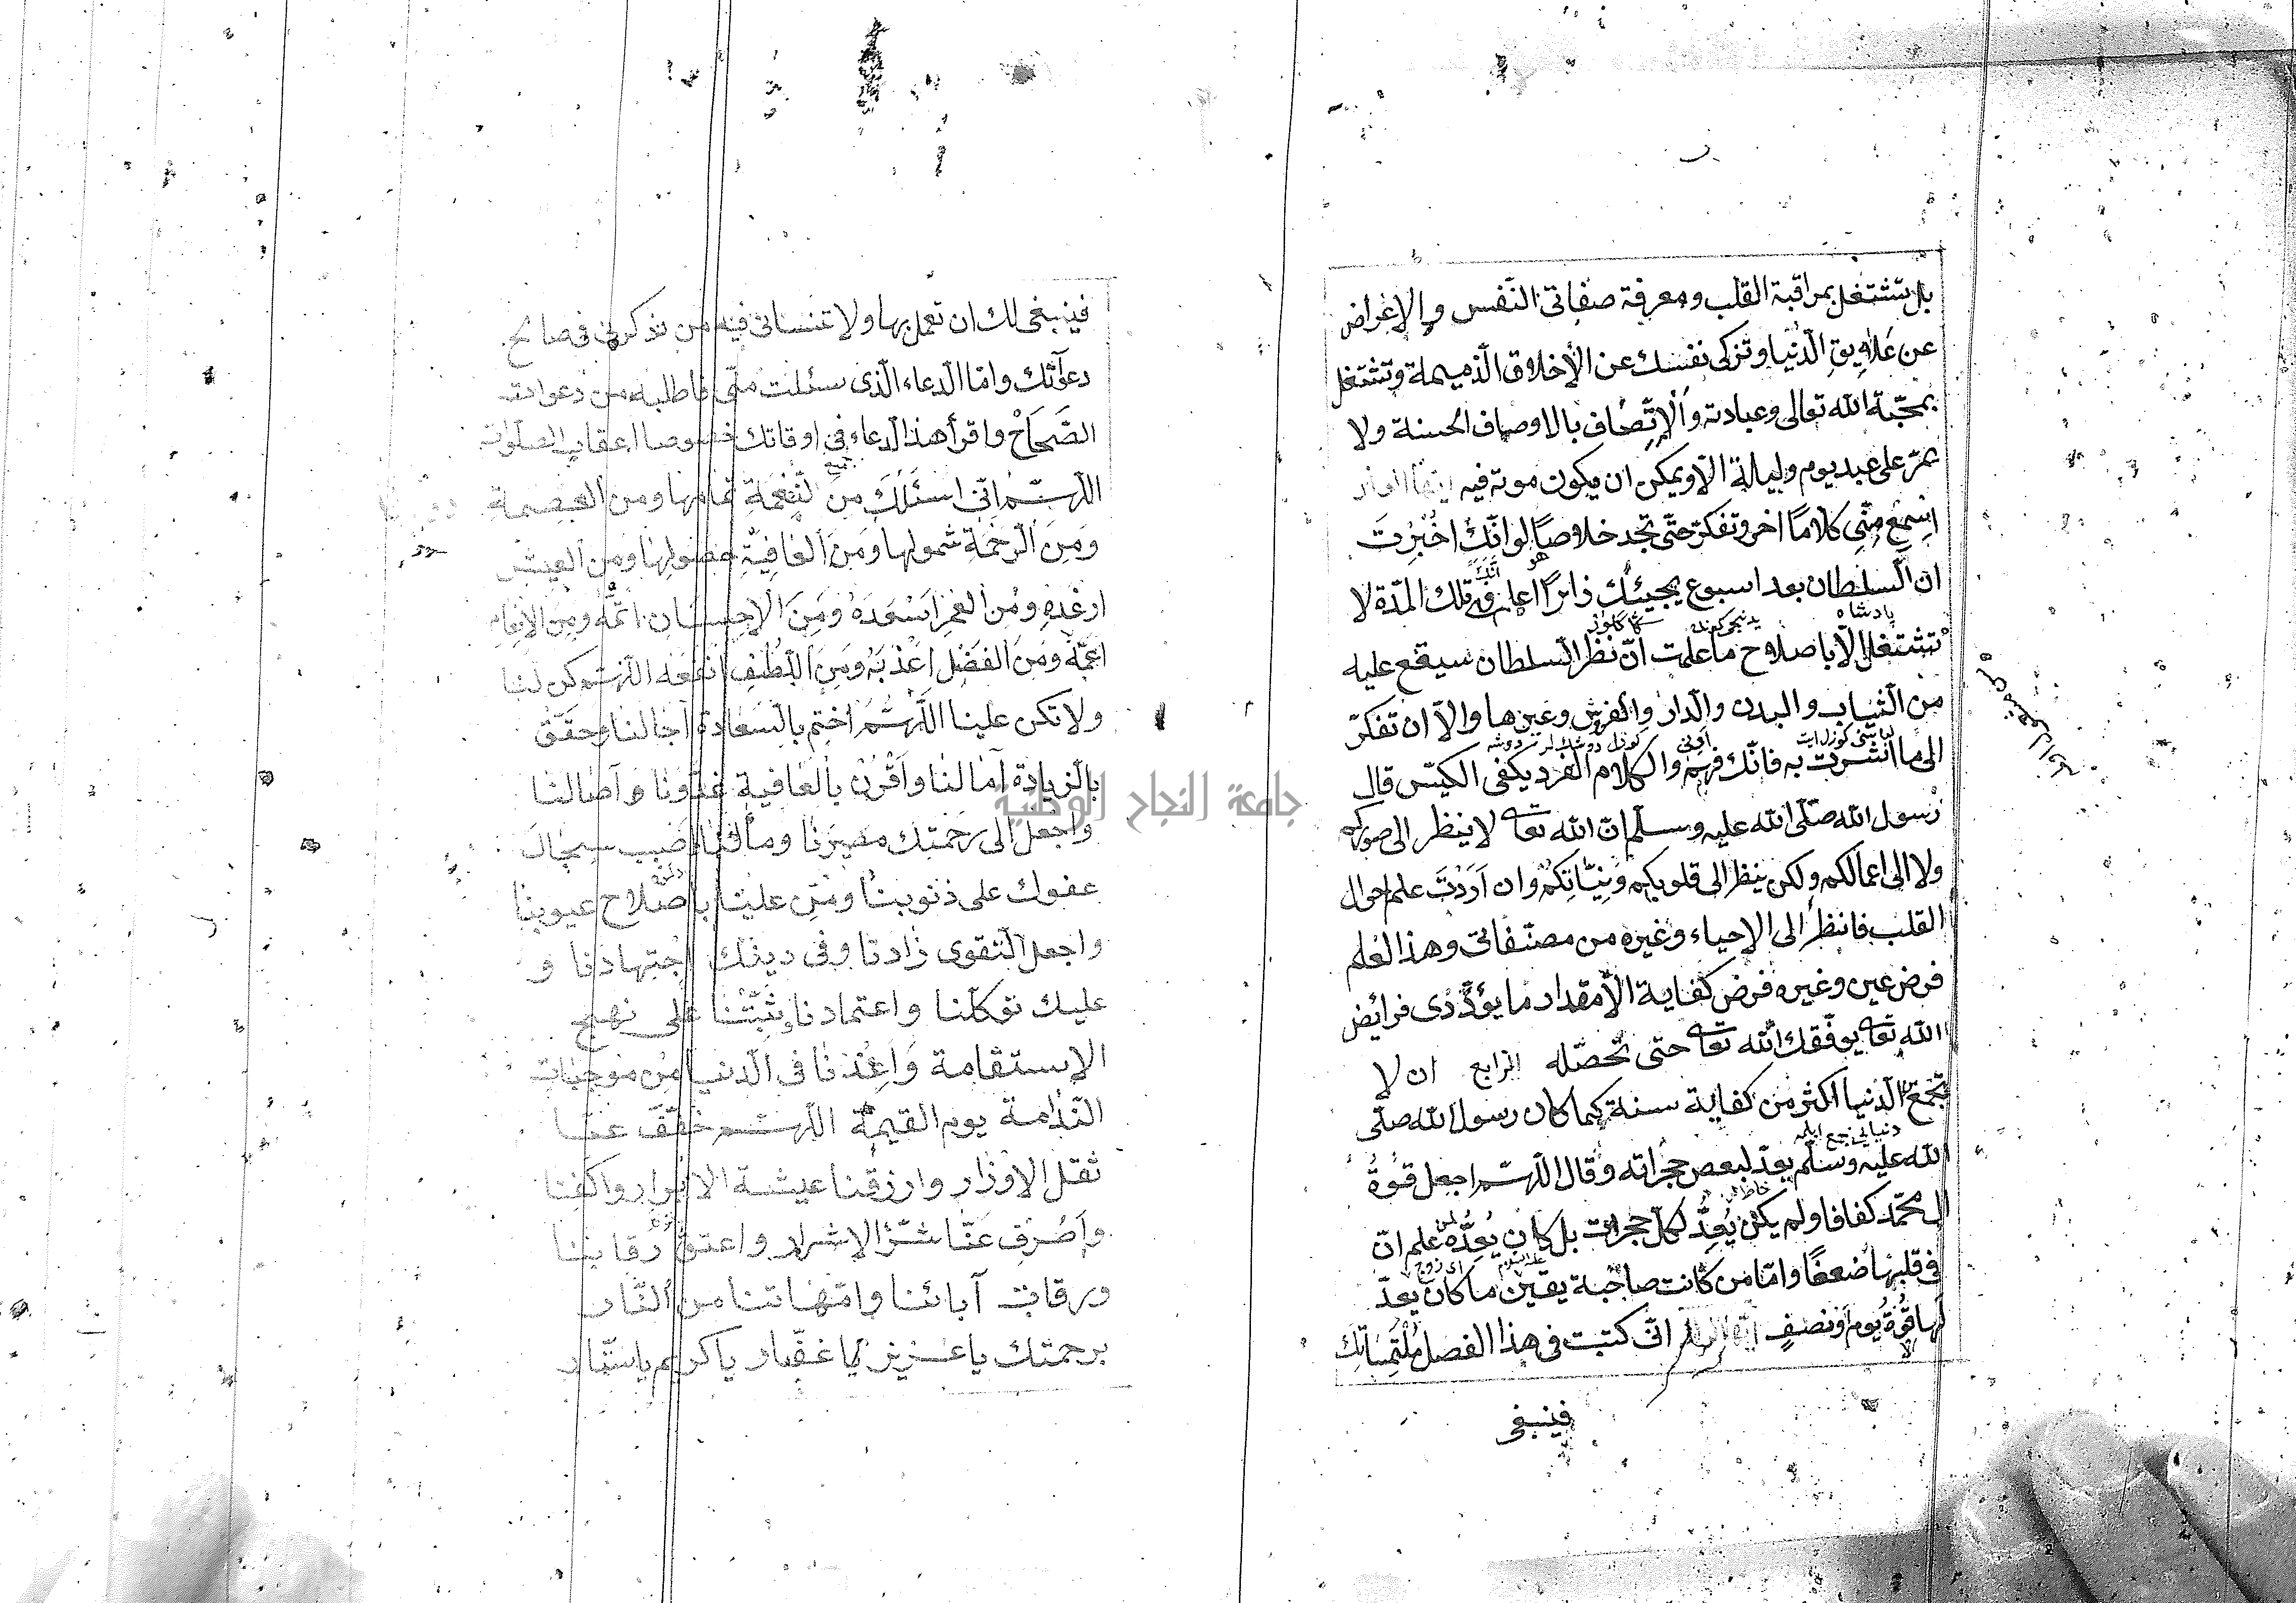 بل تشتغل بمراقبة القلب ومعرفة صفاتى النفس والاغراض
عن علاويق الدنيا وتزكى نفسك عن الأخلاق الذميمة وتشتغل
بمحبة الله تعالى وعبادته والاتصاف بالاوصاف الحسنة ولا
يمرّ على عبد يوم وليالة الاّ ويمكن ان يكون موته فيه ايها الولد
اسمع منّى كلامًا اخر وتفكر حتّى تجد خلاوصًا لو انّك اخبرت
انّ السلطان بعد اسبوع يجيئك زائرًا اعلم انّك فى تلك المدّة لا
پادشاه
تشتغل الاّ باصلاح ما علمت انّ نظر السلطان سيقع عليه
من الثياب والبدن والدار والفرش وغيرها والاّ ان تفكرّ
الى ما اشرت به فانّك فهم والكلام الفرد يكفى الكيّس قال
رسول الله صلّى الله عليه وسلّم انّ الله تعا لا ينظر الى صوركم
ولا الى اعمالكم ولكن ينظر الى قلوبكم ونيّاتكم وان اردت علم احوال
القلب فانظر الى الاحياء وغيره من مصنّفاتى وهذا العلم
فرض عين وغيره فرض كفاية الاّ مقدار ما يؤدّى فرائض
الله تعا يوفّقك الله تعا حتى تحصّله الرابع ان لا
تجمع الدنيا اكثر من كفاية سنة كما كان رسول الله صلّى
دنيايى جمع ايلمه
الله عليه وسلّم يعدّ لبعض حجراته وقال اللّهم اجعل قوة
ال محمّد كفافا ولم يكن يُعِدُّ لكلّ حجرات بل كان يُعِدُّه لمن علم انّ
فى قلبها ضعفًا وامّا من كانت صاحبة يقين ما كان يعدّ
لها قوة يوم او نصف ايها الولد انّى كتبت فى هذا الفصل ملتمساتك
فينبغى
فينبغى لك ان تعمل بها ولا تنسانى فيه من تذكرنى فى صالح
دعائك وامّا الدعاء الّذى سئلت منّى فاطلبه من دعوات
الصّحاح واقرأ هذا الدعاء فى اوقاتك خصوصا اعقاب الصلوات
اللّهم انّى اسئلك من النّعمة تمامها ومن العصمة
ومن الرحمة شمولها ومن العافية حصولها ومن العيش
ارغده ومن العمر اسعده ومن الاحسان اتمّه ومن الانعام
اعمّه ومن الفضل اعذبه ومن اللطف انفعه اللّهم كن لنا
ولا تكن علينا اللّهم اختم بالسعادة آجالنا وحقّق
بالزيادة آمالنا واقرن بالعافية غدوّنا وآصالنا
واجعل الى رحمتك مصيرنا ومآلنا واصبب سجال
عفوك على ذنوبنا ومنّ علينا باصلاح عيوبنا
واجعل التقوى زادنا وفى دينك اجتهادنا و
عليك توكلنا واعتمادنا وثبّتنا على نهج
الاستقامة واعذنا فى الدنيا من موجبات
النّدامة يوم القيمة اللّهم خفّف عنّا
ثقل الاوزار وارزقنا عيشة الابرار واكفنا
واصرف عنّا شرّ الاشرار واعتق رقابنا
ورقاب آبائنا وامّهاتنا من النّار
برحمتك يا عزيز يا غفّار يا كريم يا ستّار
جامعة النجاح الوطنية